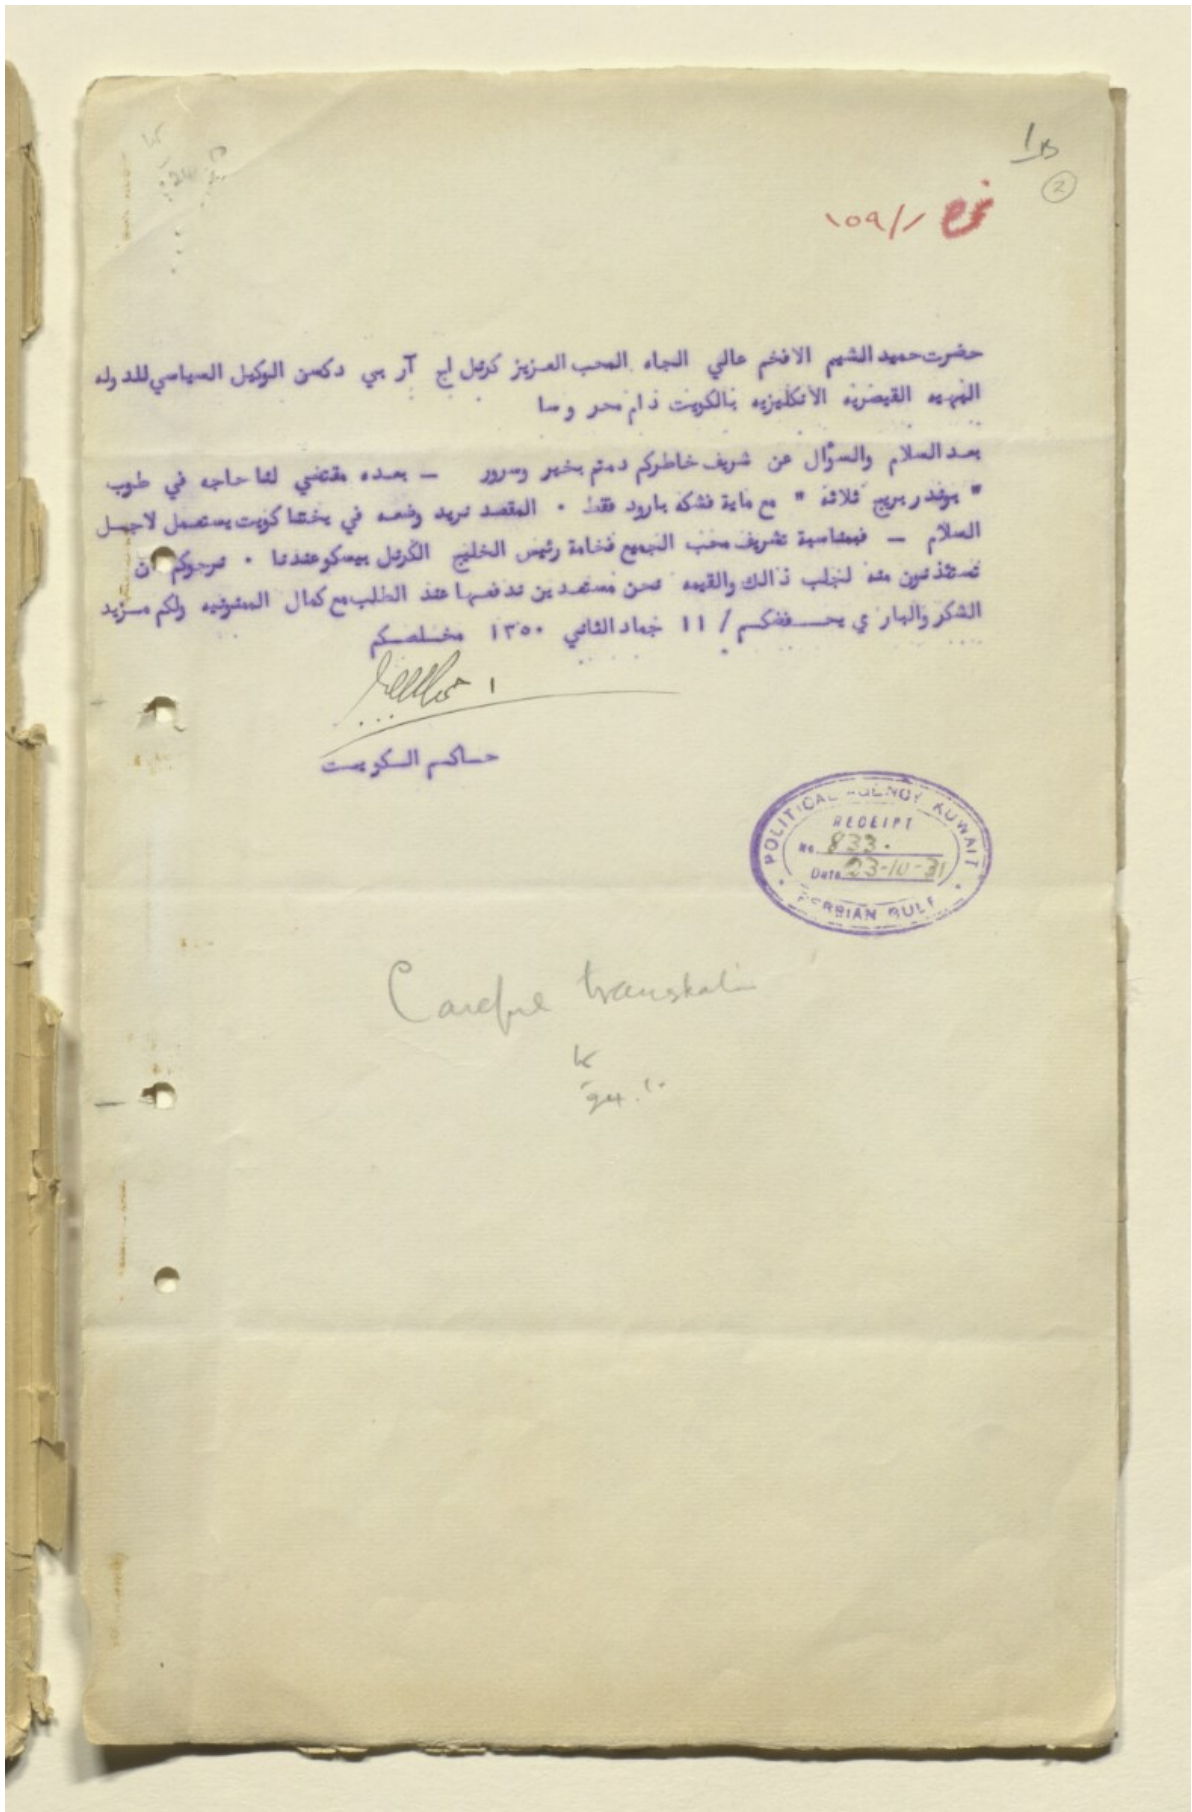 2
١٥٩/١
حضرت حميد الشيم الافخم عالي الجاه المحب العزيز كرنل اچ آر بي دكسن الوكيل السياسي للدوله
البهيه القيصريه الأنكليزيه بالكويت دام محروسا
بعد السلام والسؤال عن شريف خاطركم دمتم بخير وسرور — بعده مقتضي لنا حاجه في طوب
" بوندر بريج ثلاثة " مع ماية فشكه بارود فقط ٠ المقصد نريد وضعه في يختنا كويت يستعمل لاجل
السلام — فبمناسبة تشريف محب الجميع فخامة رئيس الخليج الكرنل بيسكو عندنا ٠ نرجوكم ان
تستئذنون منه لنجلب ذالك والقيمه نحن مستعدين ندفعها عند الطلب مع كمال الممنونيه ولكم مزيد
الشكر والباري يحفظكم / ١١ جماد الثاني ١٣٥٠ مخلصكم
حاكم الكويت
POLITICAL AGENCY KUWAIT
RECEIPT
No. 833.
Date 23-10-31
PERSIAN GULF
Careful translation